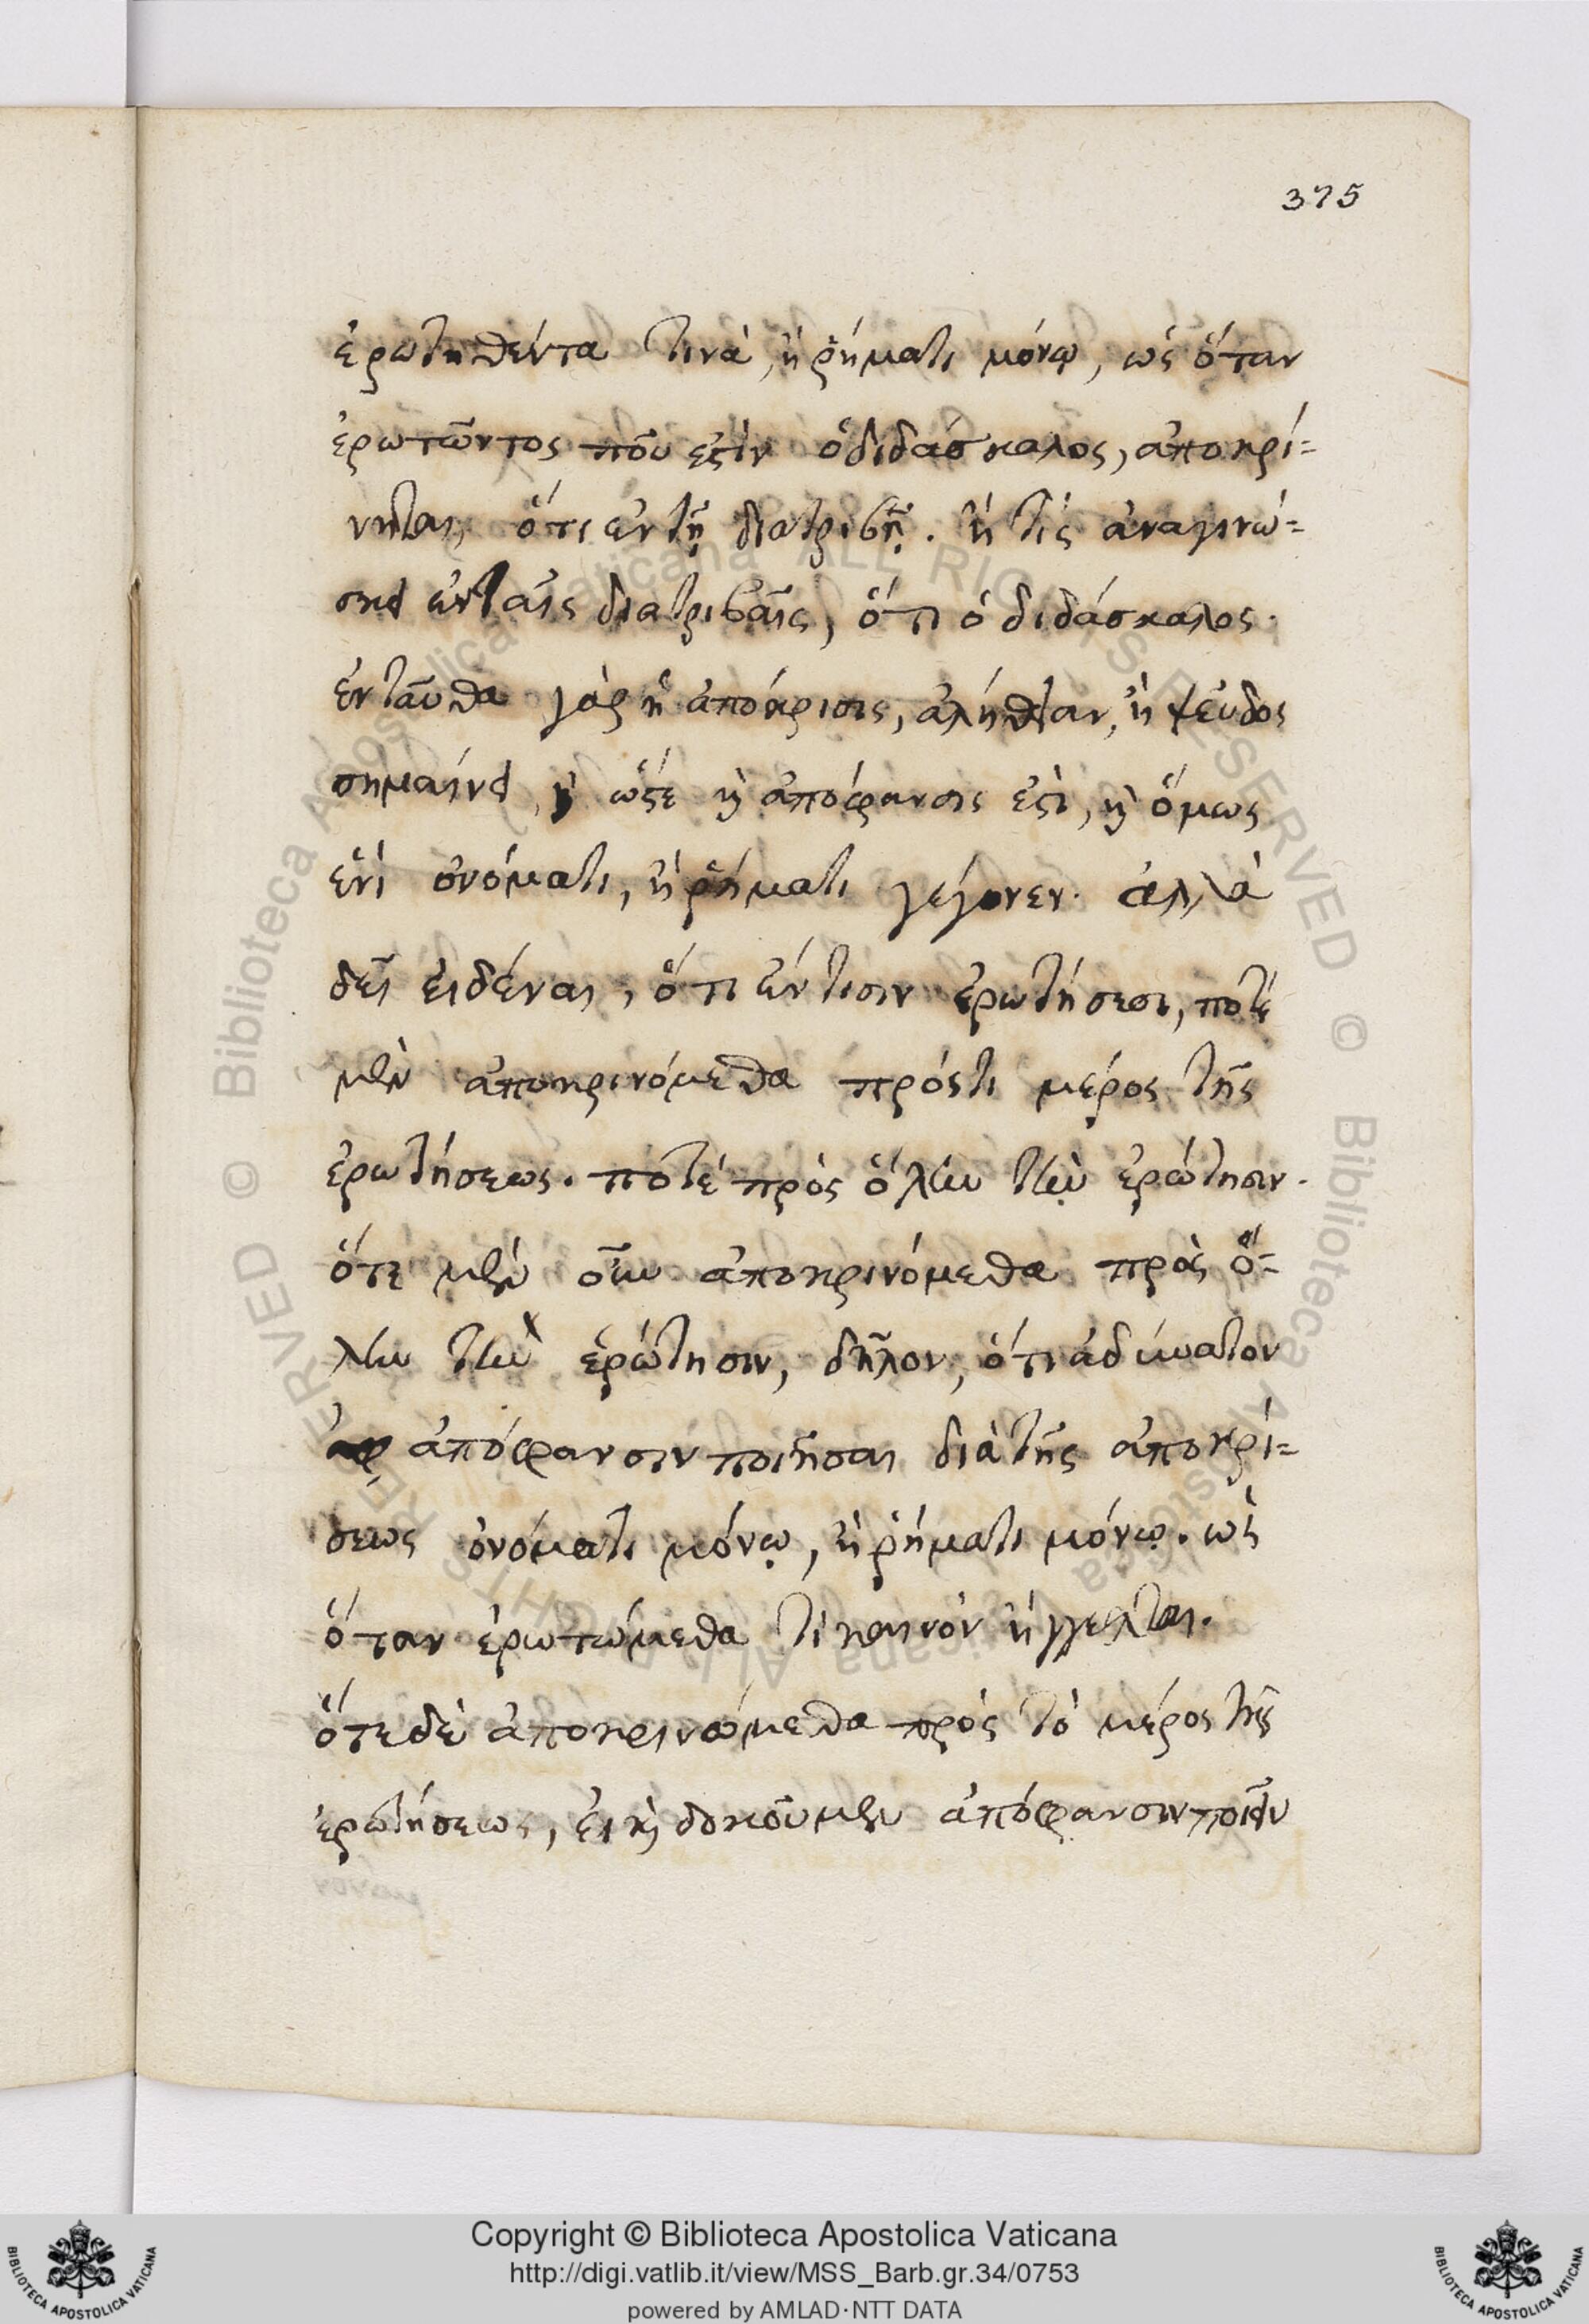 375
ἐρωτηθέντα τινὰ, ἢ ῥήματι μόνῳ, ὡς ὅταν
ἐρωτῶντος ποῦ ἐστὶν ὁ διδάσκαλος, ἀποκρί=
νηται, ὅτι ἐν τῇ διατριβῇ. ἢ τίς ἀναγινώ=
σκει ἐν ταῖς διατριβαῖς, ὅτι ὁ διδάσκαλος.
ἐνταῦθα γὰρ ἡ ἀπόκρισις, ἀλήθειαν, ἢ ψεῦδος
σημαίνει, ὥστε καὶ ἀπόφανσις ἐστὶ, καὶ ὅμως
ἑνὶ ὀνόματι, ἢ ῥήματι γέγονεν. ἀλλὰ
δεῖ εἰδέναι, ὅτι ἔν τισιν ἐρωτήσεσι, ποτὲ
μὲν ἀποκρινόμεθα πρός τι μέρος τῆς
ἐρωτήσεως. ποτὲ πρὸς ὅλην τὴν ἐρώτησιν.
ὅτε μὲν οὖν ἀποκρινόμεθα πρὸς ὅ=
λην τὴν ἐρώτησιν, δῆλον, ὅτι ἀδύνατον
ἀπόφανσιν ποιῆσαι διὰ τῆς ἀποκρί=
σεως ὀνόματι μόνῳ, ἢ ῥήματι μόνῳ. ὡς
ὅταν ἐρωτώμεθα τί καινὸν ἤγγελται.
ὅτε δὲ ἀποκρινώμεθα πρὸς τὸ μέρος τῆς
ἐρωτήσεως, εἰ καὶ δοκοῦμεν ἀπόφανσιν ποιεῖν
© Biblioteca Apostolica Vaticana ALL RIGHTS RESERVED
© Biblioteca Apostolica Vaticana ALL RIGHTS RESERVED
Copyright © Biblioteca Apostolica Vaticana
http://digi.vatlib.it/view/MSS_Barb.gr.34/0753
powered by AMLAD·NTT DATA
BIBLIOTECA APOSTOLICA VATICANA
BIBLIOTECA APOSTOLICA VATICANA